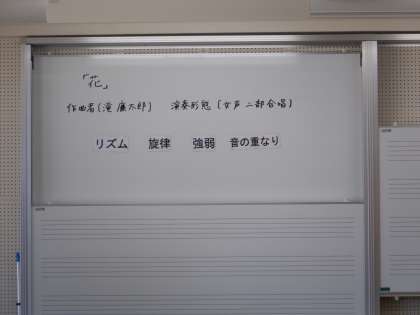 「花」
作曲者〔滝 廉太郎〕 演奏形態〔女声二部合唱〕
リズム 旋律 強弱 音の重なり